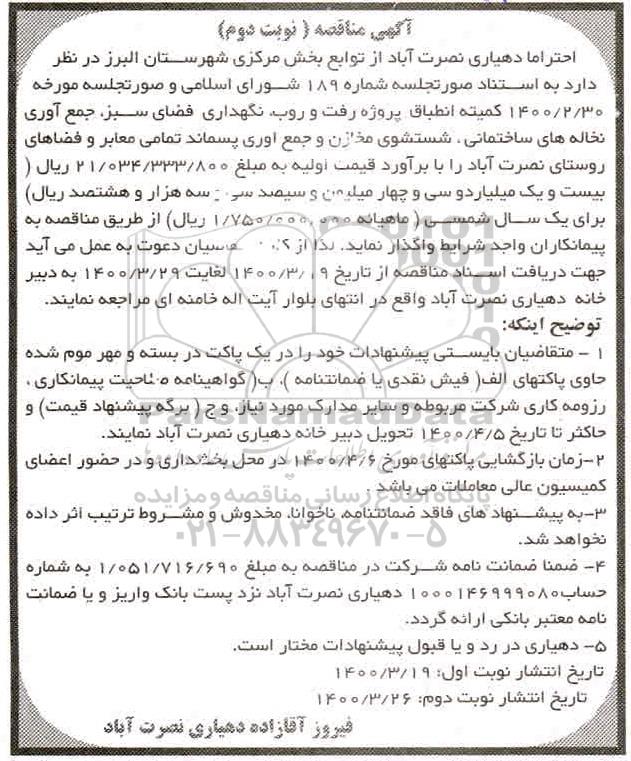 آگهی مناقصه ( نوبت دوم)
احتراما دهیاری نصرت آباد از توابع بخش مرکزی شهرستان البرز در نظر
دارد به استناد صورتجلسه شماره ۱۸۹ شورای اسلامی و صورتجلسه مورخه
۱۴۰۰/۲/۳۰ کمیته انطباق پروژه رفت و روب، نگهداری فضای سبز، جمع آوری
نخاله های ساختمانی ، شستشوی مخازن و جمع اوری پسماند تمامی معابر و فضاهای
روستای نصرت آباد را با برآورد قیمت اولیه به مبلغ ۲۱/۰۳۴/۳۳۳/۸۰۰ ریال (
بیست و یک میلیاردو سی و چهار میلیون و سیصد سی و سه هزار و هشتصد ریال)
برای یک سال شمسی ( ماهیانه ۱/۷۵۰/۰۰۰/۰۰۰ ریال) از طریق مناقصه به
پیمانکاران واجد شرایط واگذار نماید. لذا از دعوت به عمل می آید
جهت دریافت اسناد مناقصه از تاریخ ۱۴۰۰/۳/۱۹ لغایت ۱۴۰۰/۳/۲۹ به دبیر
خانه دهیاری نصرت آباد واقع در انتهای بلوار آیت اله خامنه ای مراجعه نمایند.
توضیح اینکه:
۱ - متقاضیان بایستی پیشنهادات خود را در یک پاکت در بسته و مهر موم شده
حاوی پاکتهای الف( فیش نقدی یا ضمانتنامه )، ب( گواهینامه صلاحیت پیمانکاری ،
رزومه کاری شرکت مربوطه و سایر مدارک مورد نیاز، و ج ( برگه پیشنهاد قیمت) و
حاکثر تا تاریخ ۱۴۰۰/۴/۵ تحویل دبیر خانه دهیاری نصرت آباد نمایند.
۲-زمان بازگشایی پاکتهای مورخ ۱۴۰۰/۴/۶ در محل بخشداری و در حضور اعضای
کمیسیون عالی معاملات می باشد
۳-به پیشنهاد های فاقد ضمانتنامه، ناخوانا، مخدوش و مشروط ترتیب اثر داده
نخواهد شد.
۴- ضمنا ضمانت نامه شرکت در مناقصه به مبلغ ۱/۰۵۱/۷۱۶/۶۹۰ به شماره
حساب۱۰۰۰۱۴۶۹۹۹۰۸۰ دهیاری نصرت آباد نزد پست بانک واریز و یا ضمانت
نامه معتبر بانکی ارائه گردد.
۵- دهیاری در رد و یا قبول پیشنهادات مختار است.
تاریخ انتشار نوبت اول: ۱۴۰۰/۳/۱۹
تاریخ انتشار نوبت دوم: ۱۴۰۰/۳/۲۶
فیروز آقازاده دهیاری نصرت آباد
ParsNamadData
پایگاه اطلاع رسانی مناقصه و مزایده
۰۲۱-۸۸۳۴۹۶۷۰-۵